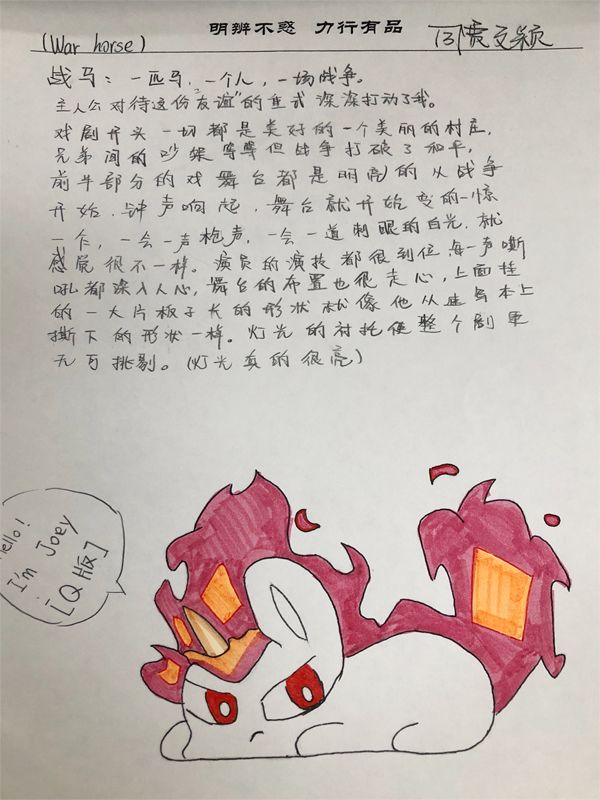 明辨不惑 力行有品
(War horse)
战马：一匹马，一个人，一场战争。
主人公对待这份"友谊"的重式深深打动了我。
戏剧开头一切都是美好的一个美丽的村庄，
兄弟间的吵架等等但战争打破了和平，
前半部分的戏舞台都是明亮的从战争
开始，钟声响起，舞台就开始变的一惊
一乍，一会一声枪声，一会一道刺眼的白光，就
感觉很不一样。演员的演技都很到位，每一声嘶
吼都深入人心，舞台的布置也很走心，上面挂
的一大片板子长的形状就像他从速写本上
撕下的形状一样。灯光的衬托使整个剧更
无可挑剔。(灯光真的很亮)
Hello!
I'm Joey
[Q版]